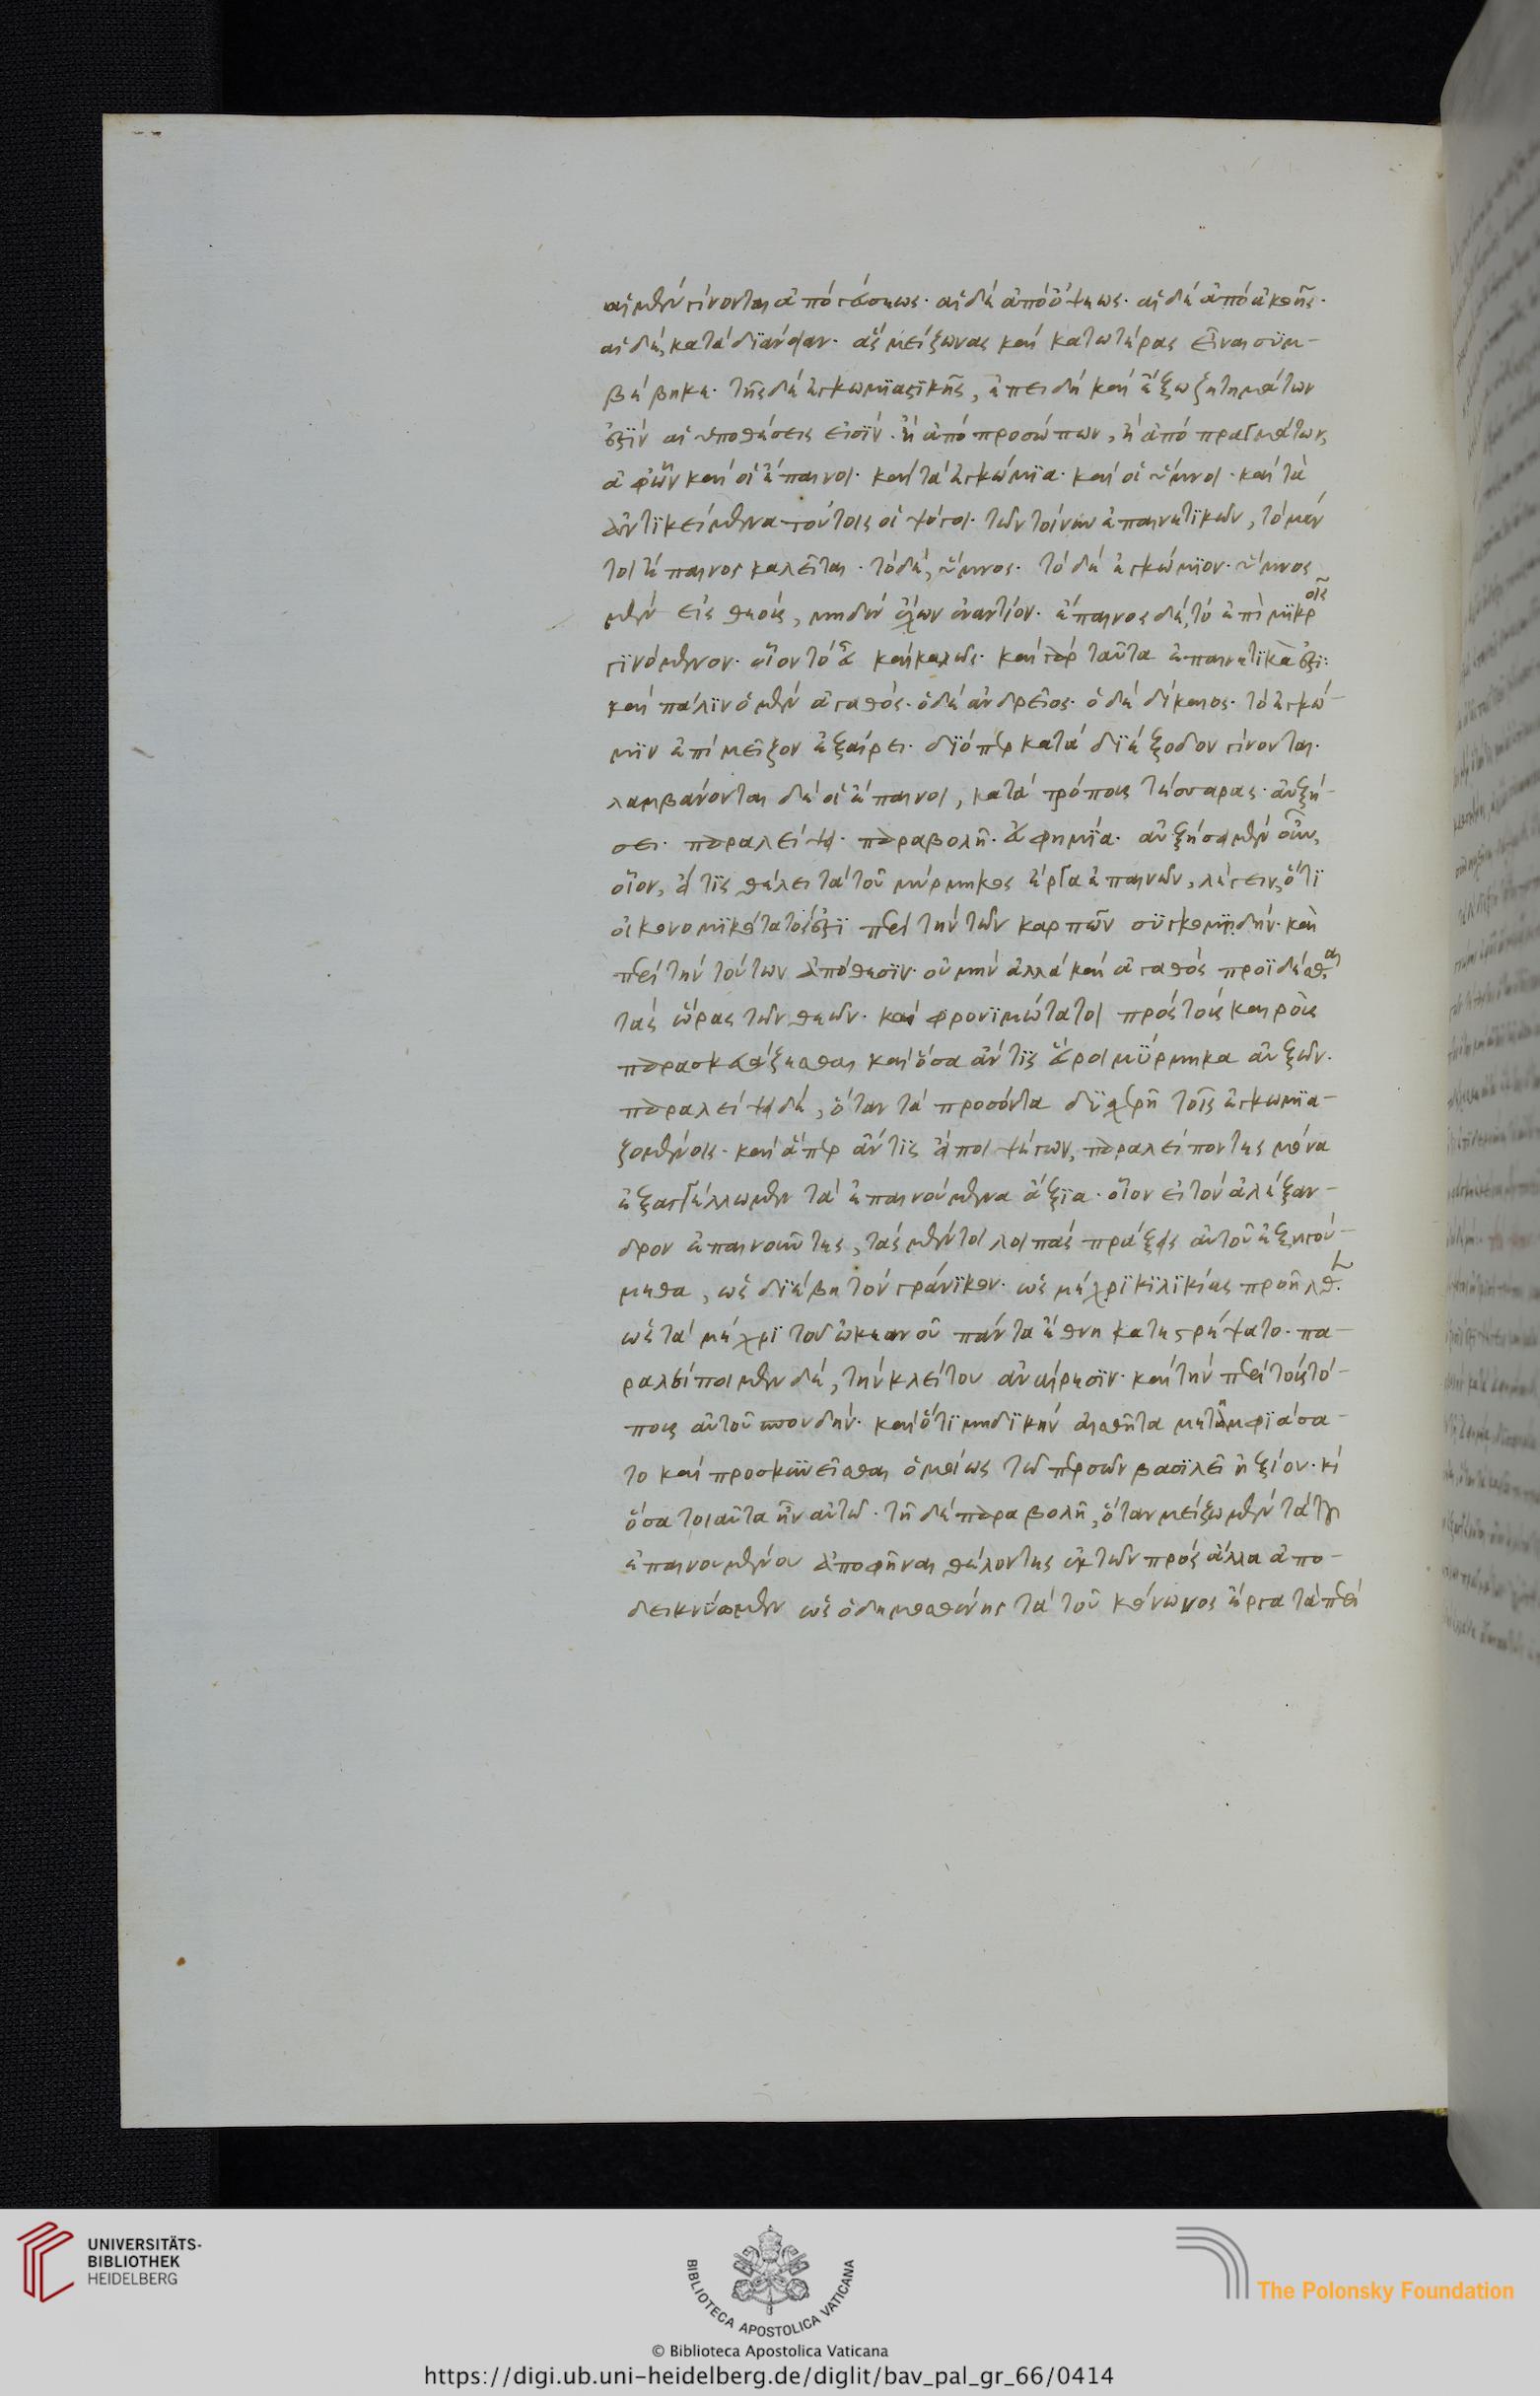 αἱ μὲν γίνονται ἀπὸ γεύσεως· αἱ δὲ ἀπὸ ὄψεως· αἱ δὲ ἀπὸ ἀκοῆς·
αἱ δὲ, κατὰ διάνοιαν· ἃς μείζωνας καὶ κατωτέρας εἶναι συμ-
βέβηκε· τῆς δὲ ἐγκωμιαστικῆς, ἐπειδὴ καὶ ἔξω ζητημάτων
ἐστὶν αἱ ὑποθέσεις εἰσὶν· ἢ ἀπὸ προσώπων, ἢ ἀπὸ πραγμάτων,
ἀφ' ὧν καὶ οἱ ἔπαινοι· καὶ τὰ ἐγκώμια· καὶ οἱ ὕμνοι· καὶ τὰ
ἀντικείμενα τούτοις οἱ ψόγοι· τῶν τοίνυν ἐπαινετικῶν, τὸ μέν
τοι ἔπαινος καλεῖται· τὸ δὲ, ὕμνος· τὸ δὲ ἐγκώμιον· ὕμνος
μὲν εἰς θεοὺς, μηδὲν ἔχων ἐναντίον· ἔπαινος δὲ, τὸ ἐπὶ μικροῖς
γινόμενον· οἷον τὸ εὖ καὶ καλῶς· καὶ γὰρ ταῦτα ἐπαινετικὰ ἐστι:
καὶ πάλιν ὁ μὲν ἀγαθός· ὁ δὲ ἀνδρεῖος· ὁ δὲ δίκαιος· τὸ ἐγκώ-
μιν ἐπὶ μεῖζον ἐξαίρει· διόπερ κατὰ διέξοδον γίνονται·
λαμβάνονται δὲ οἱ ἔπαινοι, κατὰ τρόπους τέσσαρας· αὐξή-
σει· παραλείψει· παραβολῇ· εὐφημία· αὐξήσει μὲν οὖν,
οἷον, εἴ τις θέλει τὰ τοῦ μύρμηκος ἔργα ἐπαινῶν, λέγειν, ὅτι
οἰκονομικότατοί ἐστι περὶ τὴν τῶν καρπῶν συγκομιδήν· καὶ
περὶ τὴν τούτων ἀπόθεσιν· οὐ μὴν ἀλλὰ καὶ ἀγαθὸς προϊδέσθαι
τὰς ὥρας τῶν θεῶν· καὶ φρονιμώτατοι πρὸς τοὺς καιροὺς
παρασκευάζεσθαι καὶ ὅσα ἄν τις εὕροι μύρμηκα αὔξων·
παραλείψει δὲ, ὅταν τὰ προσόντα δυσχερῆ τοῖς ἐγκωμια-
ζομένοις· καὶ ἅπερ ἄν τις εἴποι ψέγων, παραλείποντες μόνα
ἐξαγγέλλωμεν τὰ ἐπαινούμενα ἄξια· οἷον εἰ τὸν ἀλέξαν-
δρον ἐπαινοῦντες, τὰς μέντοι λοιπὰς πράξεις αὐτοῦ ἐξηγού-
μεθα, ὡς διέβη τὸν γράνικον· ὡς μέχρι κιλικίας προῆλθεν·
ὡς τὰ μέχρι τοῦ ὠκεανοῦ πάντα ἔθνη κατεστρέψατο· πα-
ραλείποιμεν δὲ, τὴν κλείτου ἀναίρεσιν· καὶ τὴν περὶ τοὺς τό-
πους αὐτοῦ σπουδήν· καὶ ὅτι μηδικὴν ἐσθῆτα μετημφιάσα-
το καὶ προσκυνεῖσθαι ὁμοίως τῷ περσῶν βασιλεῖ ἠξίου· καὶ
ὅσα τοιαῦτα ἦν αὐτῷ· τῇ δὲ παραβολῇ, ὅταν μείζω μὲν τὰ τοῦ
ἐπαινουμένου ἀποφῆναι θέλοντες ἐκ τῶν πρὸς ἄλλα ἀπο-
δεικνύομεν ὡς ὁ δημοσθένης τὰ τοῦ κόνωνος ἔργα τὰ περὶ
UNIVERSITÄTS-
BIBLIOTHEK
HEIDELBERG
BIBLIOTECA APOSTOLICA VATICANA
The Polonsky Foundation
© Biblioteca Apostolica Vaticana
https://digi.ub.uni-heidelberg.de/diglit/bav_pal_gr_66/0414